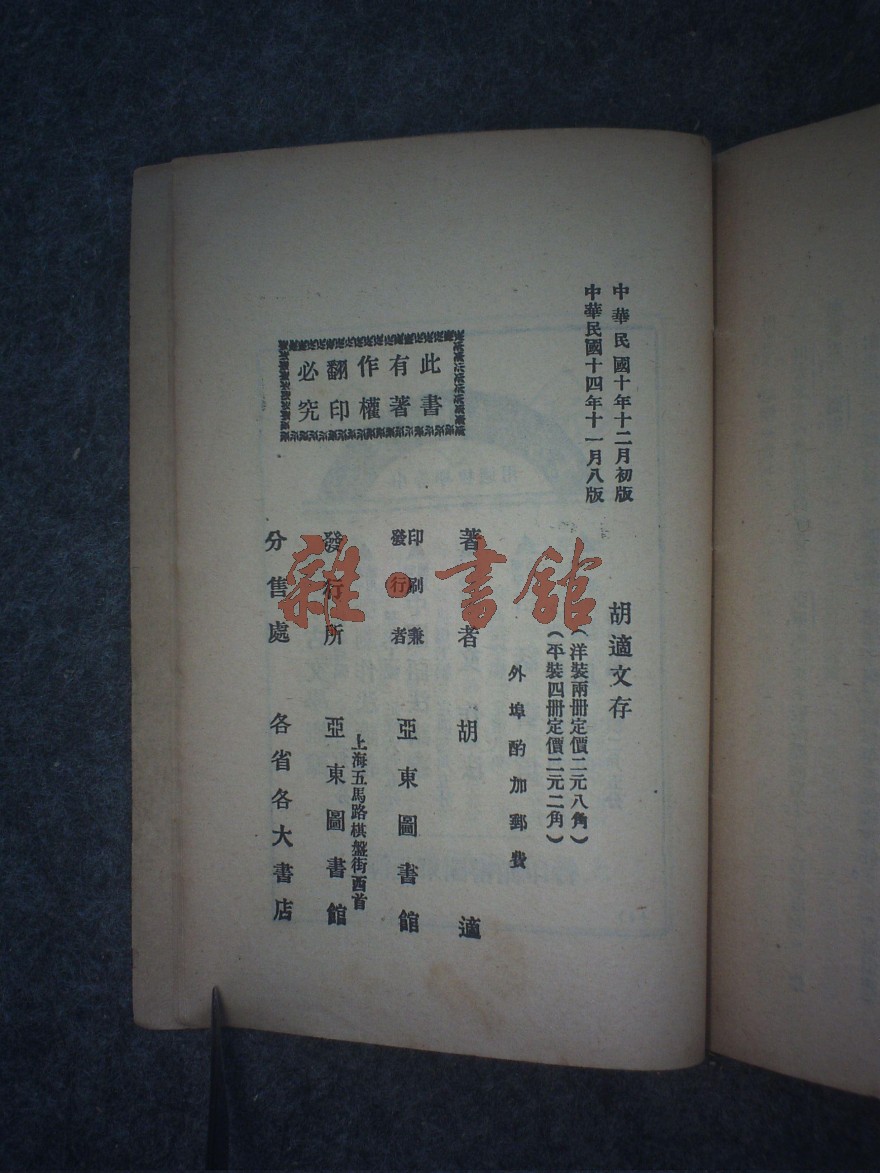 中華民國十年十二月初版
中華民國十四年十一月八版
胡適文存
(洋裝兩冊定價二元八角)
(平裝四冊定價二元二角)
外埠酌加郵費
著者 胡適
印刷兼發行者 亞東圖書館
上海五馬路棋盤街西首
發行所 亞東圖書館
分售處 各省各大書店
此書
有著
作權
翻印
必究
雜·書館